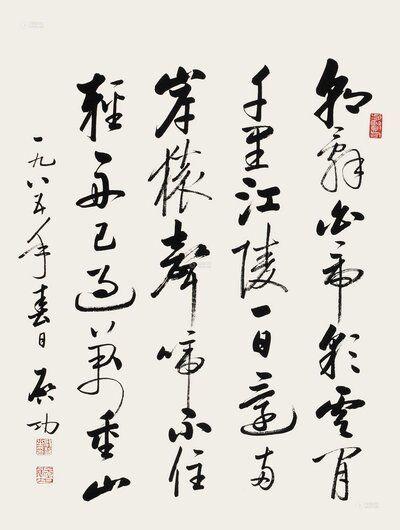 朝辞白帝彩雲间
千里江陵一日還两
岸猿聲啼不住
輕舟已過万重山
一九八五年春日 启功